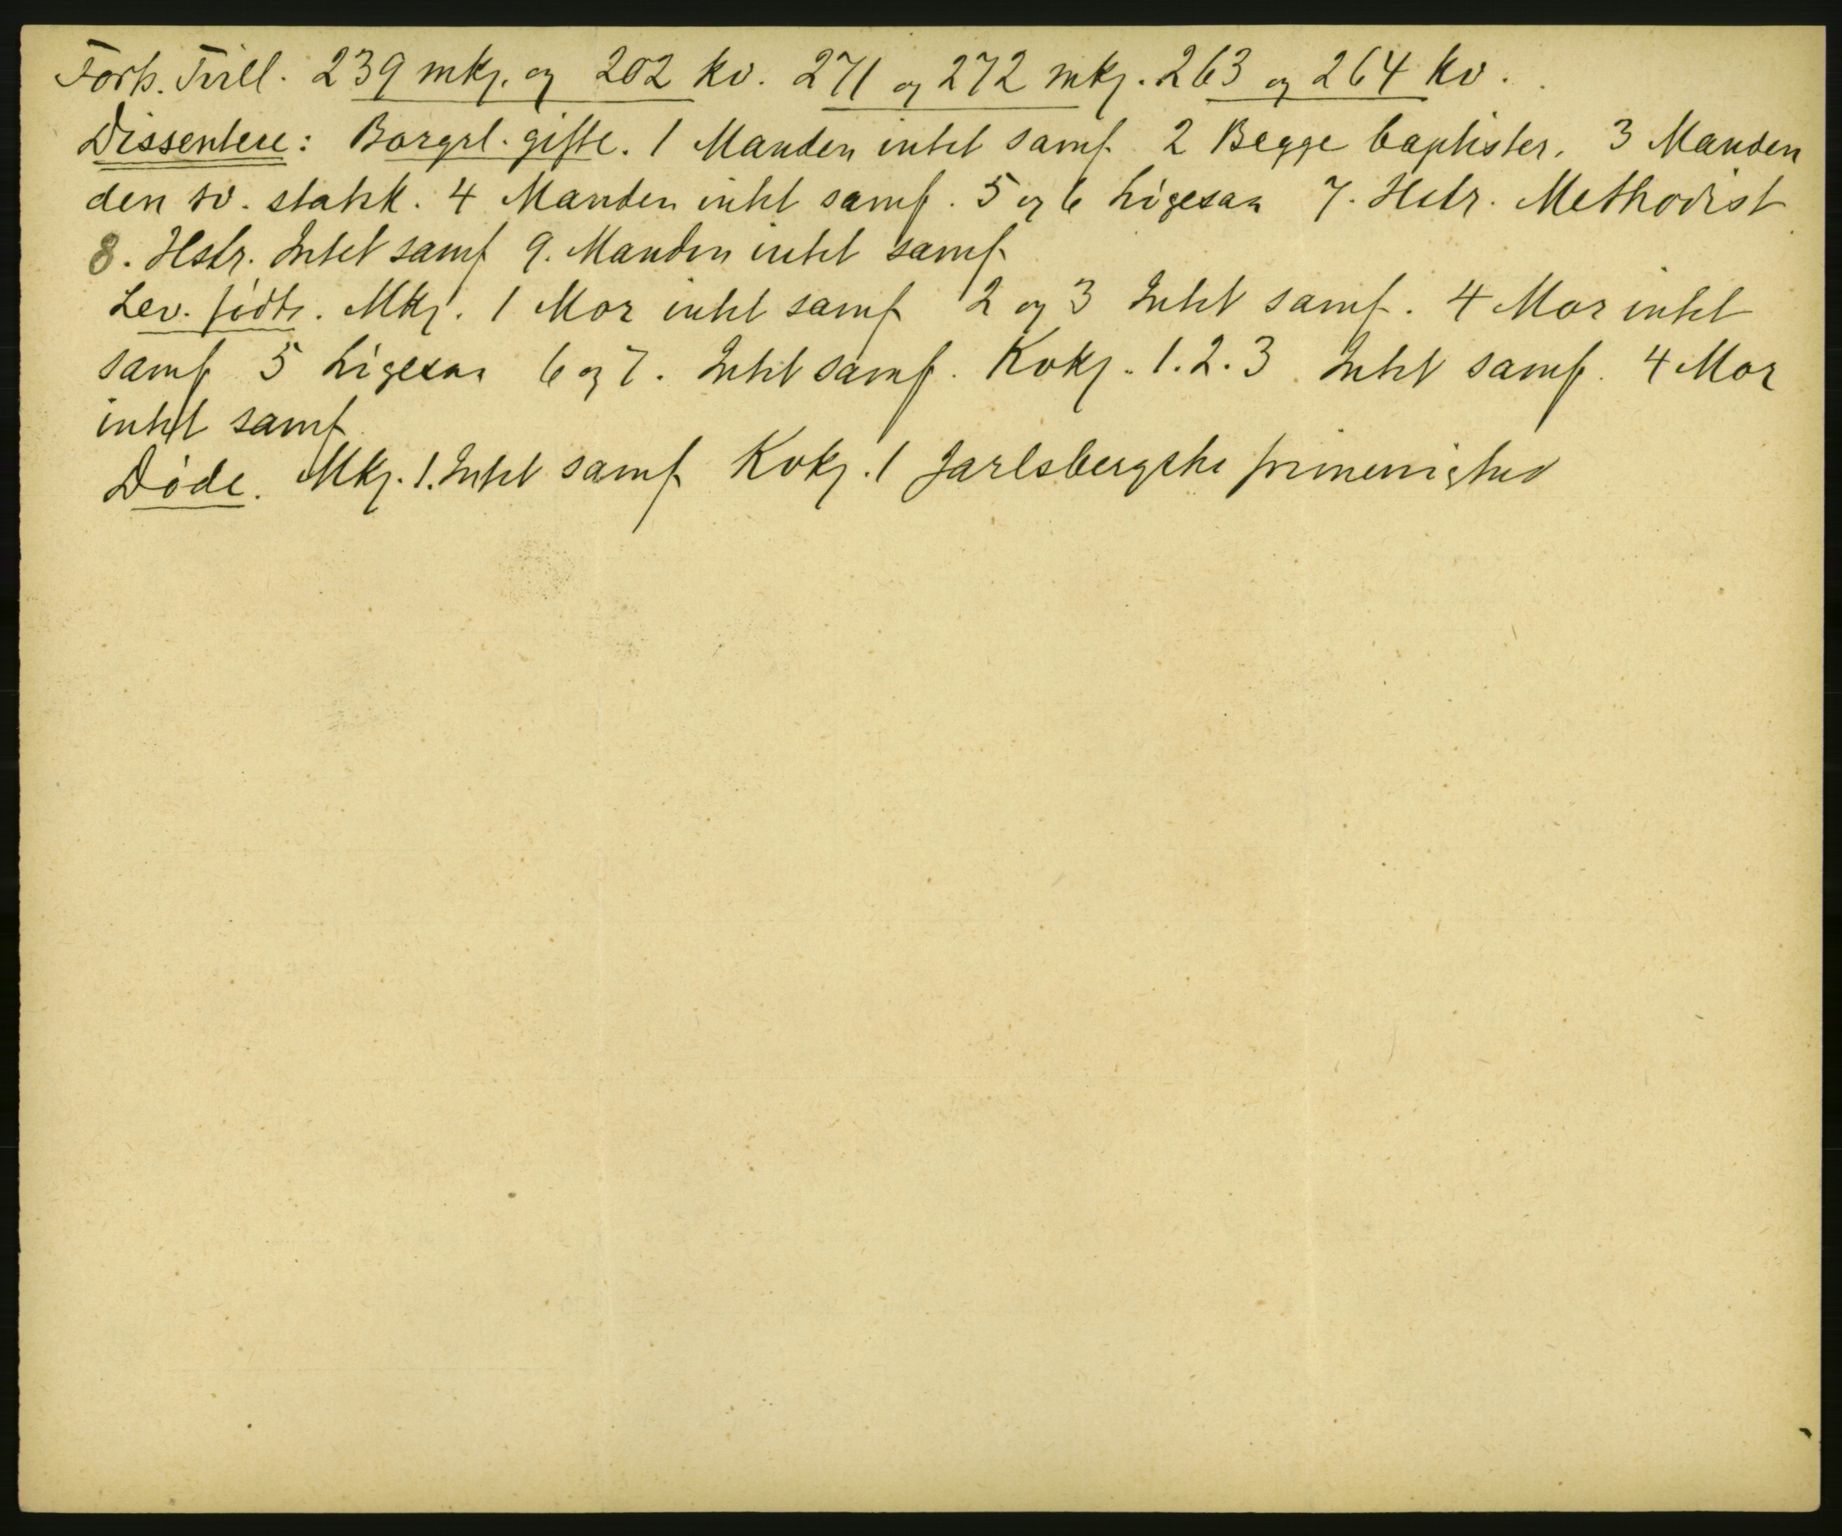 Forts. Tvill. 239 mkj. og 202 kv. 271 og 272 mkj. 263 og 264 kv.
Dissentere: Borgrl. gifte. 1 Manden intet samf 2 Begge baptister. 3 Manden
den sv. statsk. 4 Manden intet samf. 5 og 6 Ligesaa 7. Hstr. Methodist
8. Hstr. Intet samf 9. Manden intet samf
Lev. fødte. Mkj. 1 Mor intet samf 2 og 3 Intet samf. 4 Mor intet
samf 5 Ligesaa 6 og 7. Intet samf. Kvkj. 1.2.3 Intet samf. 4 Mor
intet samf
Døde. Mkj. 1. Intet samf Kvkj. 1 Jarlsbergske frimenighed